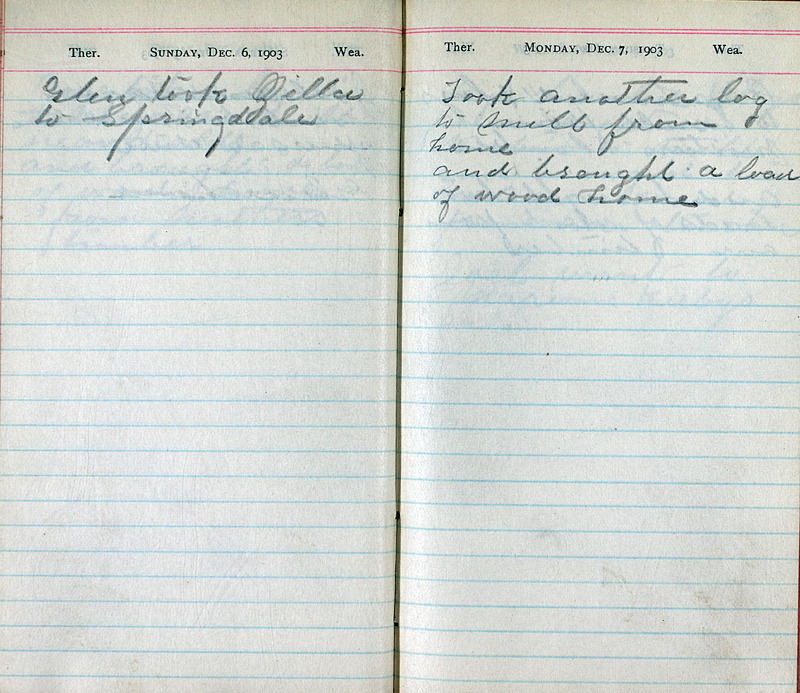 Ther. SUNDAY, DEC. 6, 1903 Wea.
Glen took Zilla
to Springdale
Ther. MONDAY, DEC. 7, 1903 Wea.
Took another log
to mill from
home
and brought a load
of wood home